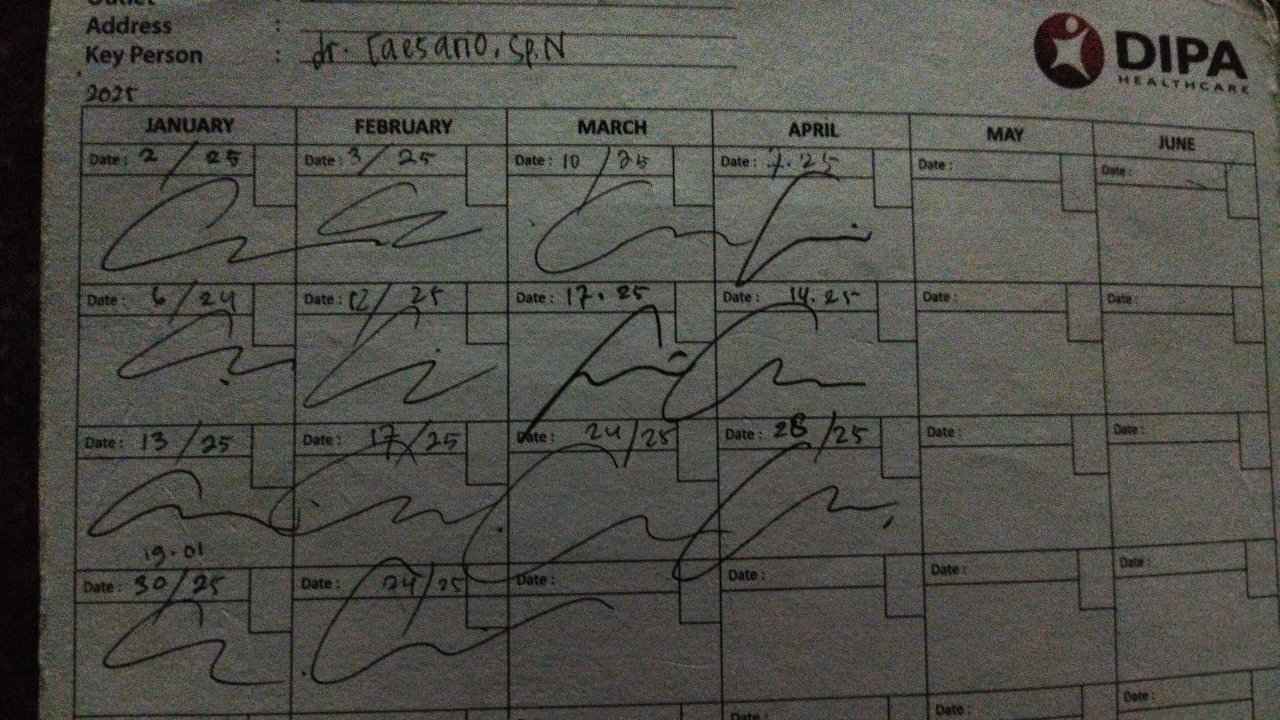 Outlet
Address :
Key Person : dr. Taesario, Sp.N
DIPA
HEALTHCARE
2025
JANUARY FEBRUARY MARCH APRIL MAY JUNE
Date : 2 / 25 Date : 3 / 25 Date : 10 / 25 Date : 7.25 Date : Date :
Date : 6 / 24 Date : 12 / 25 Date : 17.25 Date : 14.25 Date : Date :
Date : 13 / 25 Date : 17 / 25 Date : 24 / 25 Date : 28 / 25 Date : Date :
19.01
Date : 30 / 25 Date : 24 / 25 Date : Date : Date : Date :
Date : Date : Date :